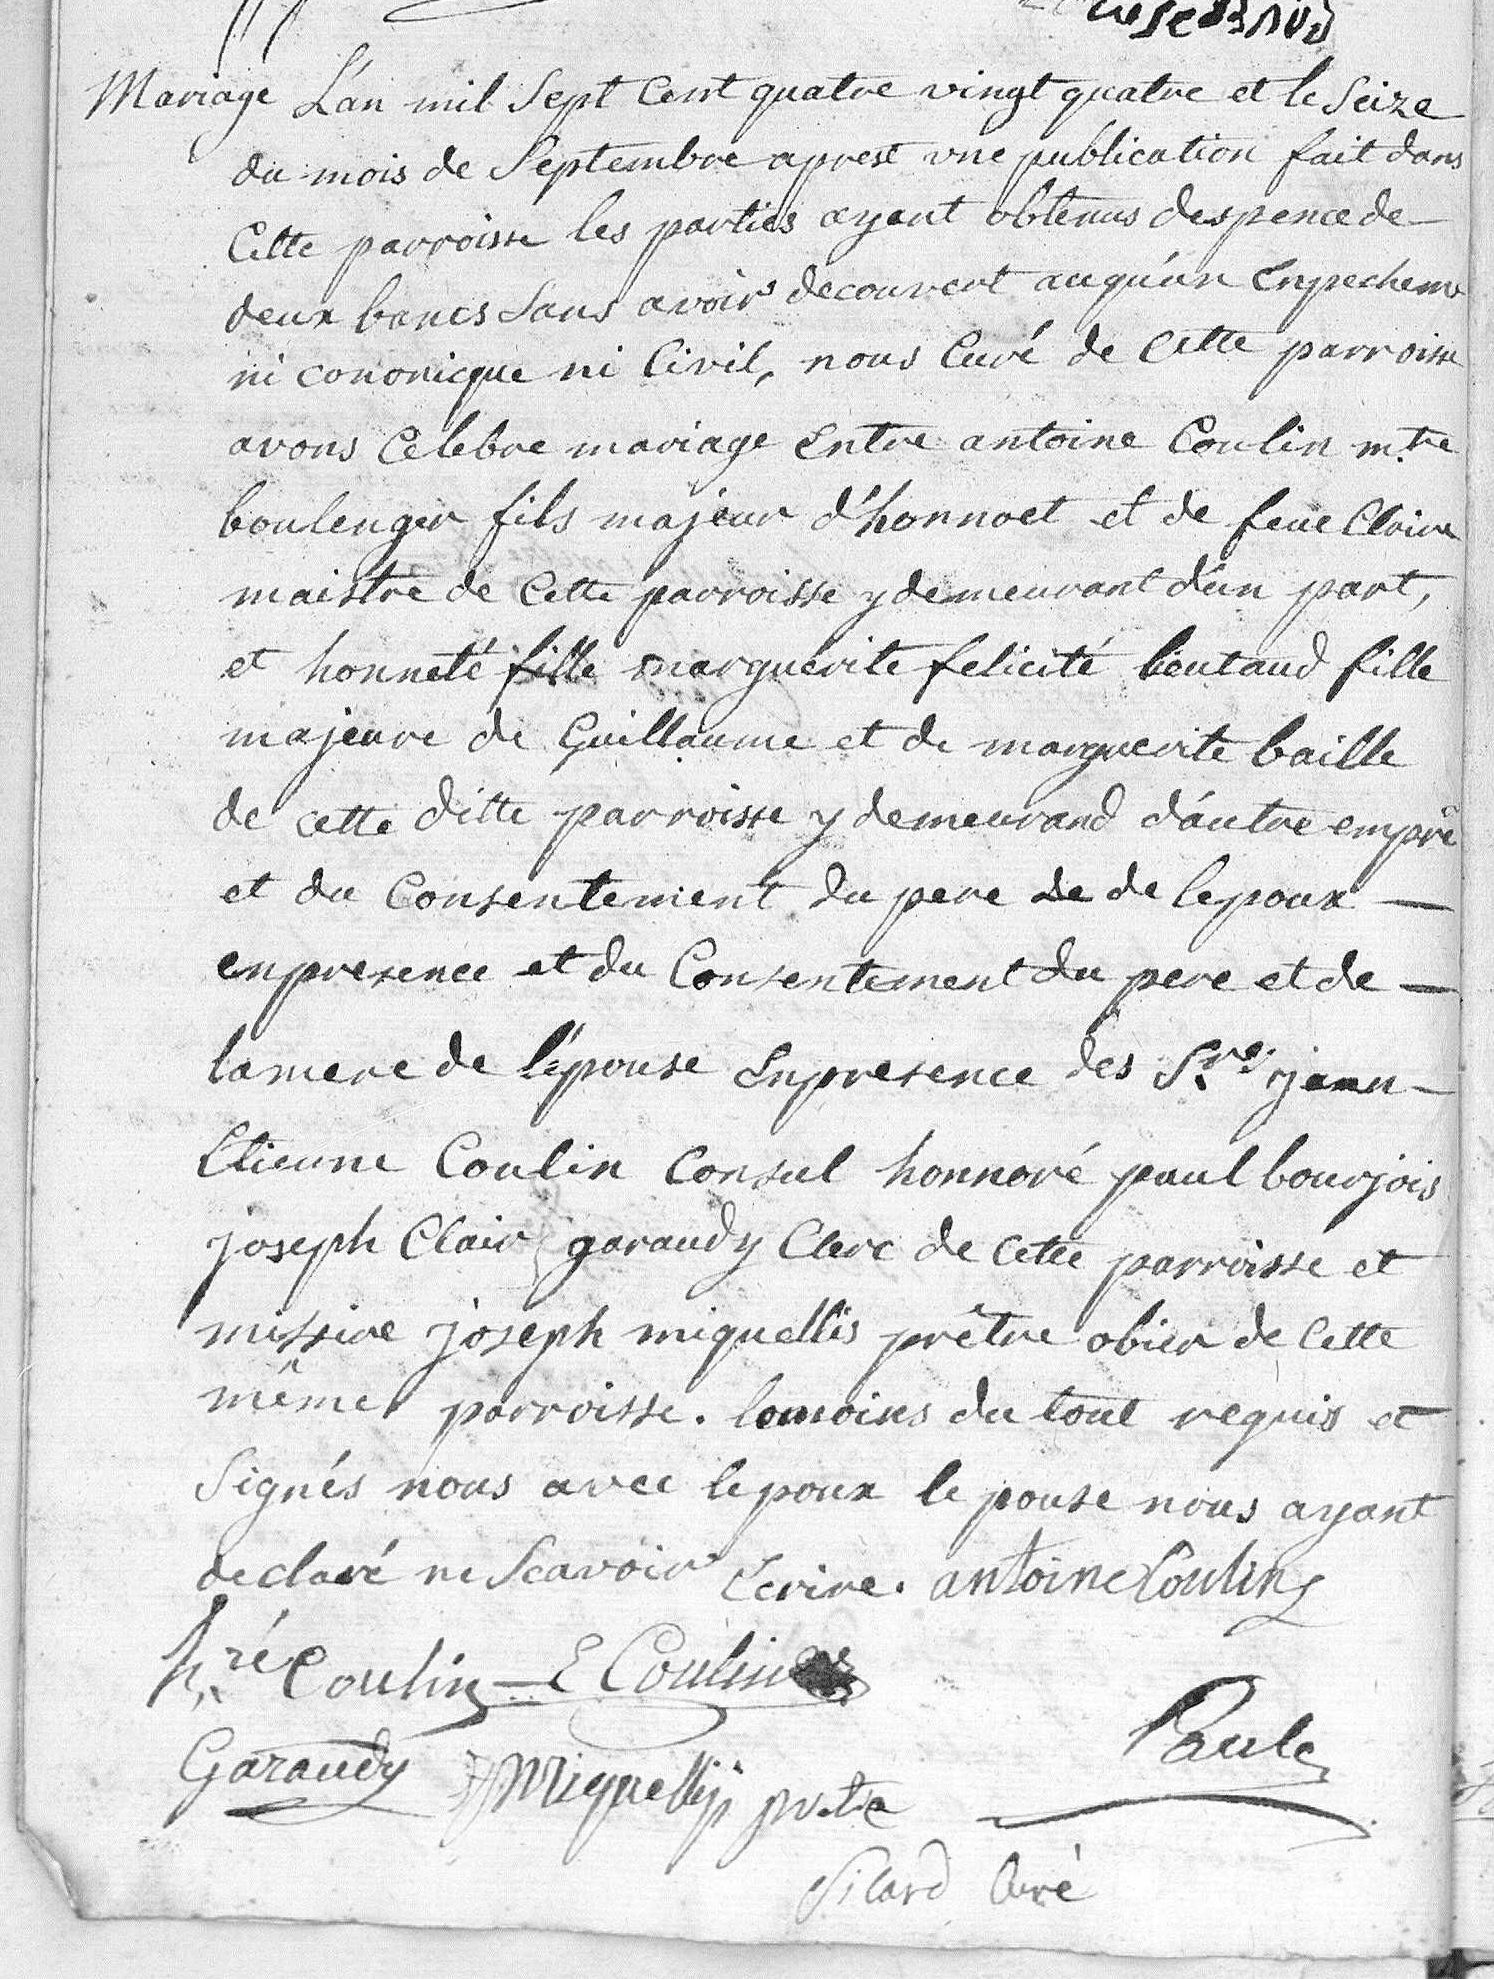 Mariage L'an mil Sept Cent quatre vingt quatre et le Seize
du mois de Septembre aprest vne publication fait dans
Cette parroisse les parties ayant obtenus despence de
deux bancs Sans avoir decouvert auqu'un Enpecheme
ni cononicque ni Civil, nous Curé de Cette parroisse
avons Celebre mariage Entre antoine Coulin m.tre
boulenger fils majeur d'honnoet et de feue Claire
maistre de Cette parroisse y demeurant d'un part,
et honneté fille marguerite felicité boutaud fille
majeure de Guillaume et de marguerite baille
de cette ditte parroisse y demeurand d'autre
et du Consentement du pere de de lepoux
enpresence et du Consentement du pere et de
lamere de l'épouse Enpresence des S.rs jean
Etienne Coulin Consul honnoré paul bourjois
joseph Clair garaudy Clerc de Cette parroisse et
missire joseph miquellis prêtre obier de Cette
même parroisse. temoins du tout requis et
Signés nous avec lepoux le pouse nous ayant
declaré ne Scavoir Ecrire. antoine Coulin
h.ré Coulin E Coulin
Garaudy Miquellis prêtre Paule
Silard Curé